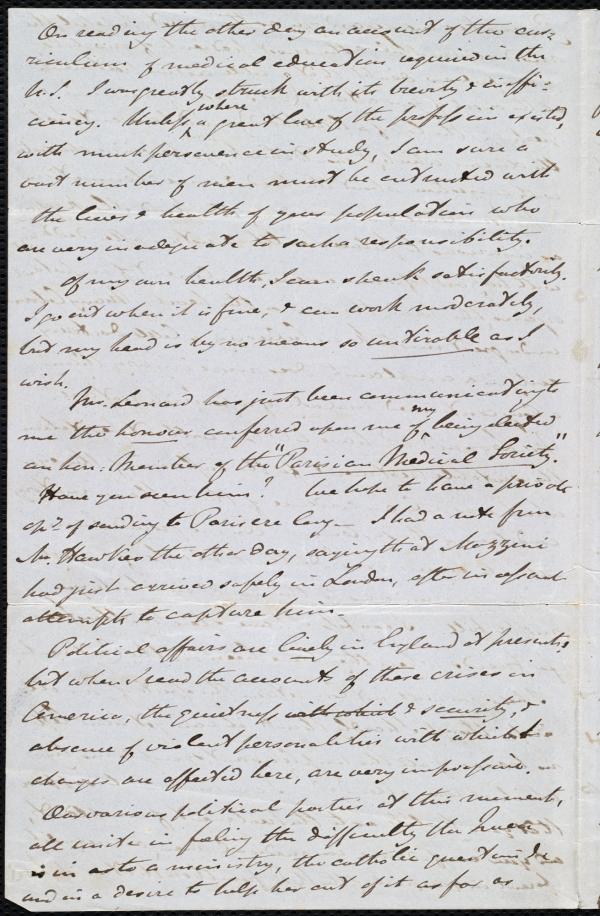 On reading the other day an account of the cur-
riculum of medical education required in the
U.S. I was greatly struck with its brevity & ineffi-
ciency. Unless, where a great love of the profession existed,
with much perseverance in study, I am sure a
vast number of men must be entrusted with
the lives & health of your population who
are very inadequate to such a responsibility.
Of my own health, I can speak satisfactorily.
I go out when it is fine, & can work moderately,
but my head is by no means so untirable as I
wish.
Mr. Leonard has just been communicating to
me the honour conferred upon me of my being elected
an hon: Member of the "Parisian Medical Society."
Have you seen him? We hope to have a private
opy. of sending to Paris ere long - I had a note from
Mr. Hawkes the other day, saying that Mazzini
had just arrived safely in London, after incessant
attempts to capture him -
Political affairs are lively in England at present,
but when I read the accounts of these crises in
America, the quietness with which & security, &
absence of violent personalities with which
changes are affected here, are very impressive.
Our various political parties at this moment,
all unite in feeling the difficulty the Queen
is in as to a ministry, the catholic question &c
and in a desire to help her out of it as far as